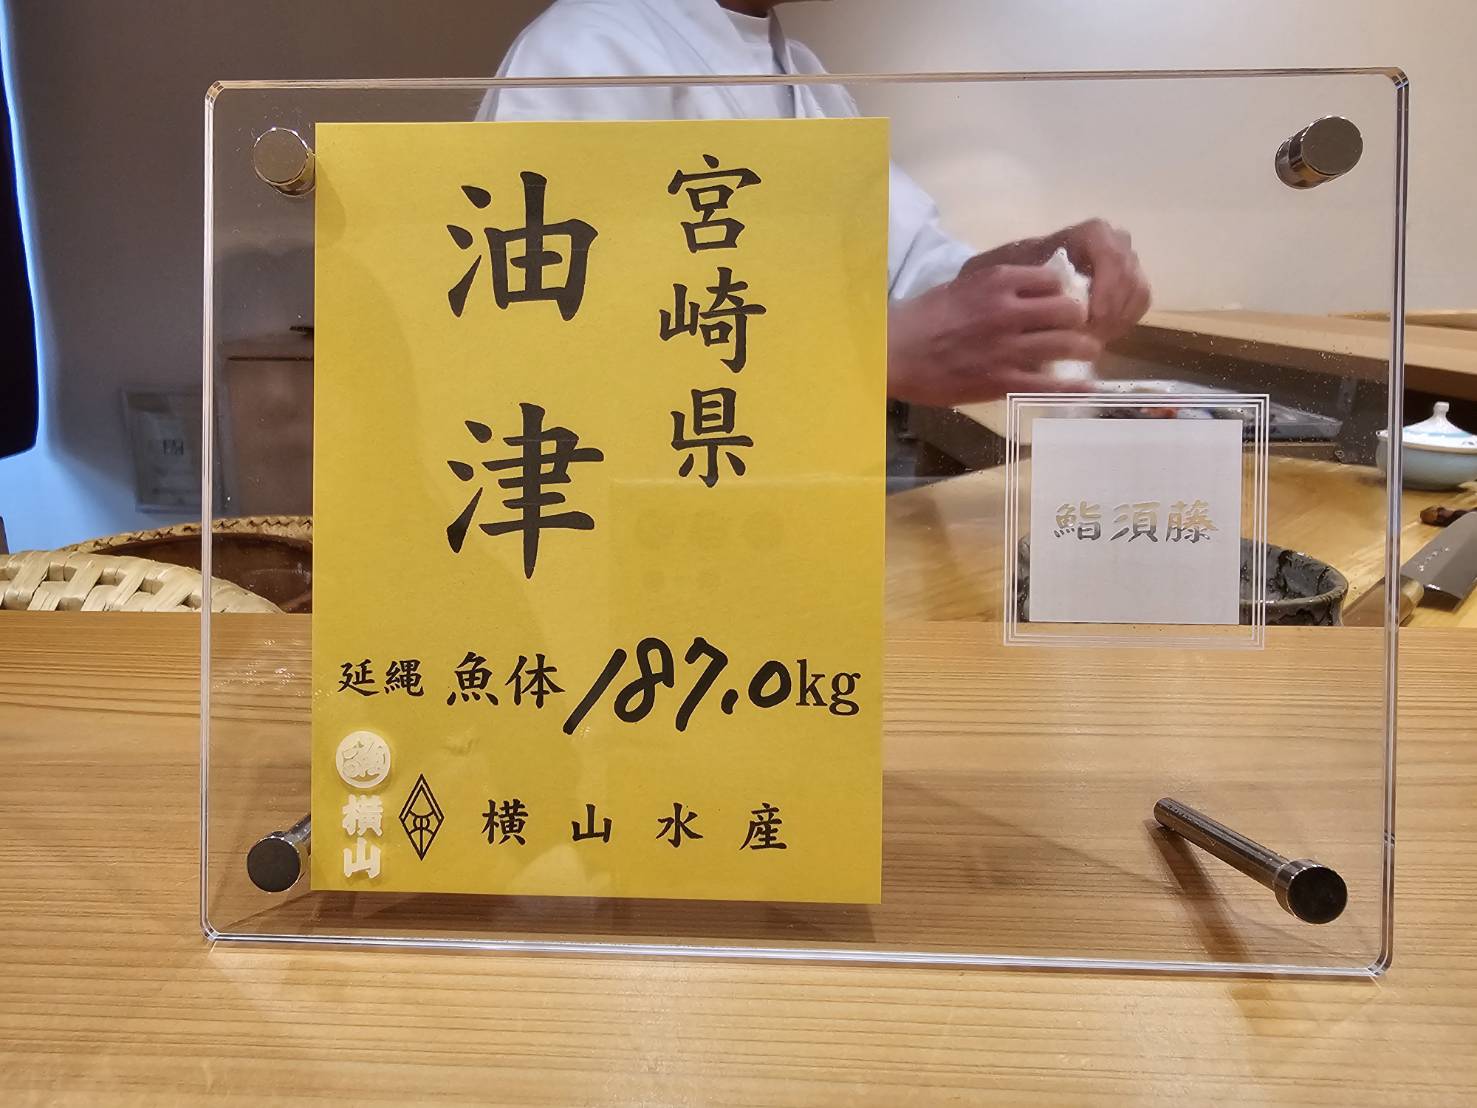 宮崎県
油津
延縄 魚体 187.0kg
横山
横山水産
鮨須藤